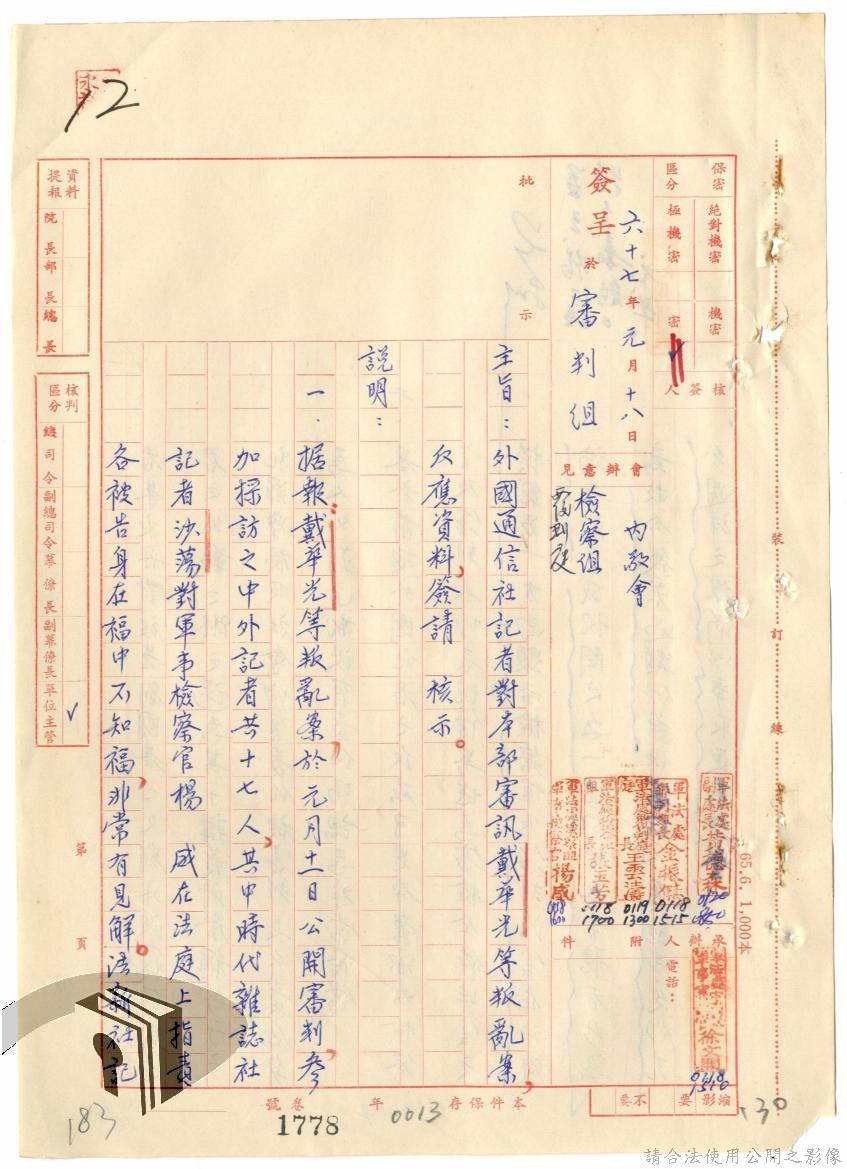 12
保密
區分
絕對機密
極機密
機密
密
核簽人
簽呈
六十七年元月十八日
於審判組
會辦意見
內敬會
檢察組
批示
主旨：外國通信社記者對本部審訊戴華光等叛亂案，
反應資料簽請　核示。
說明：
一．据報戴華光等叛亂案於元月十一日公開審判，參
加採訪之中外記者共十七人，其中時代雜誌社
記者沙蕩對軍事檢察官楊　威在法庭上指責
各被告身在福中不知福，非常有見解。法新社記
軍法處
副處長黃德霖
軍法處
金振
0118
1515
王雲濤
0119
1300
張玉芳
0118
1700
楊威
附件
承辦人
電話：
徐文開
縮影
要
不要
裝訂線
65.6. 1,000本
資料提報
院長
部長
總長
核判區分
總司令
副總司令
幕僚長
副幕僚長
單位主管
第頁
本件保存0013年
卷號
1778
183
30
請合法使用公開之影像